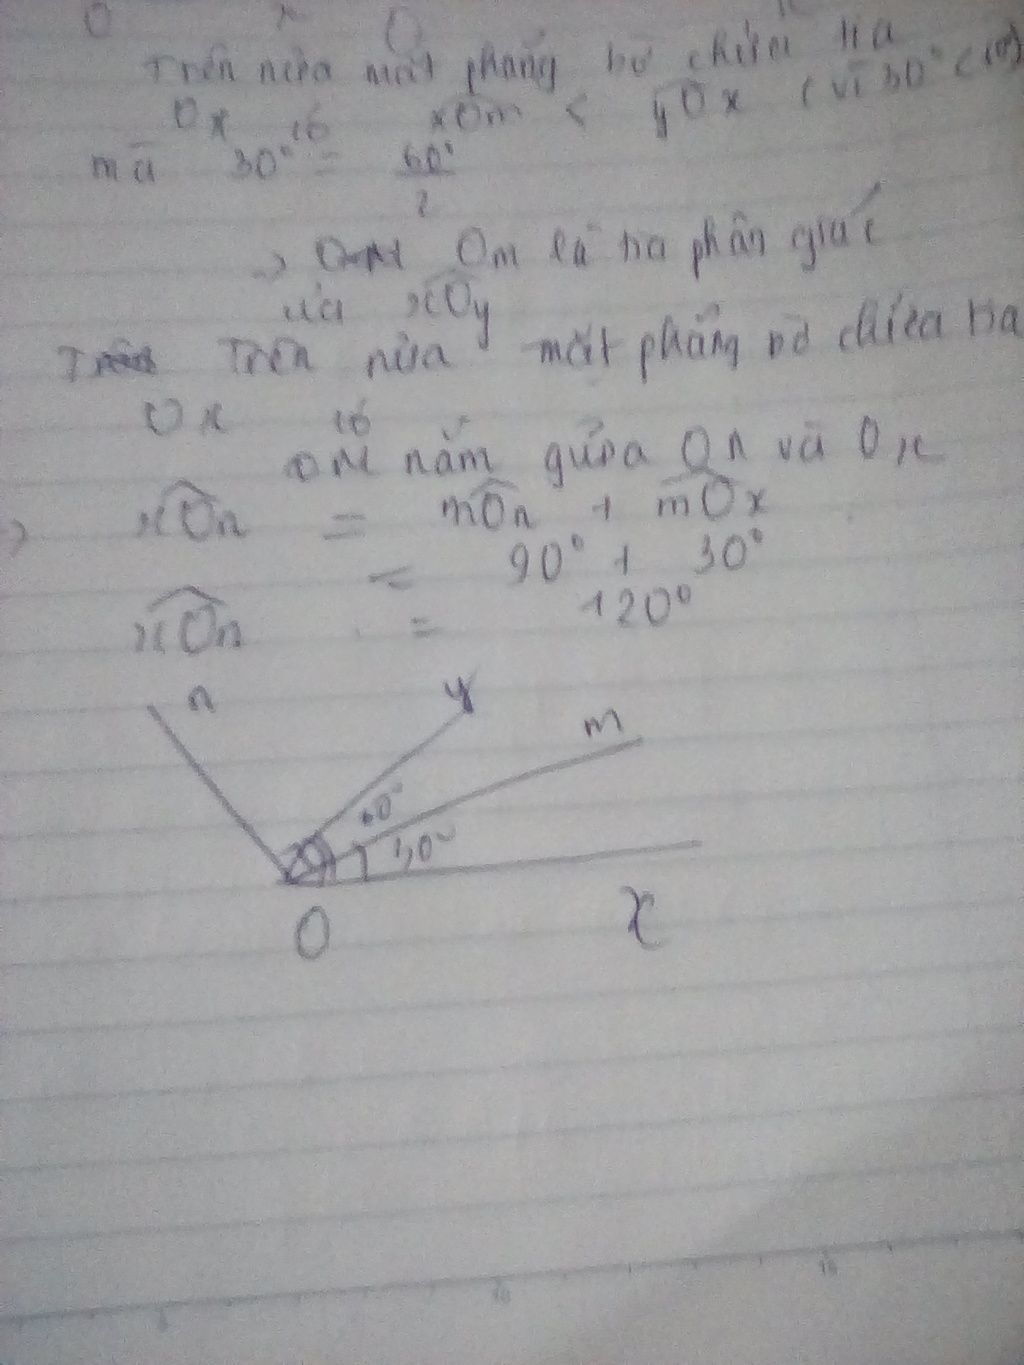 Trên nửa mặt phẳng bờ chứa tia
Ox có xOm < yOx (vì 30° < 60°)
mà 30° = 60°/2
=> Om là tia phân giác
của xOy
Trên nửa mặt phẳng bờ chứa tia
Ox có
OM nằm giữa On và Ox
xOn = mOn + mOx
= 90° + 30°
xOn = 120°
n y m
60°
30°
O x